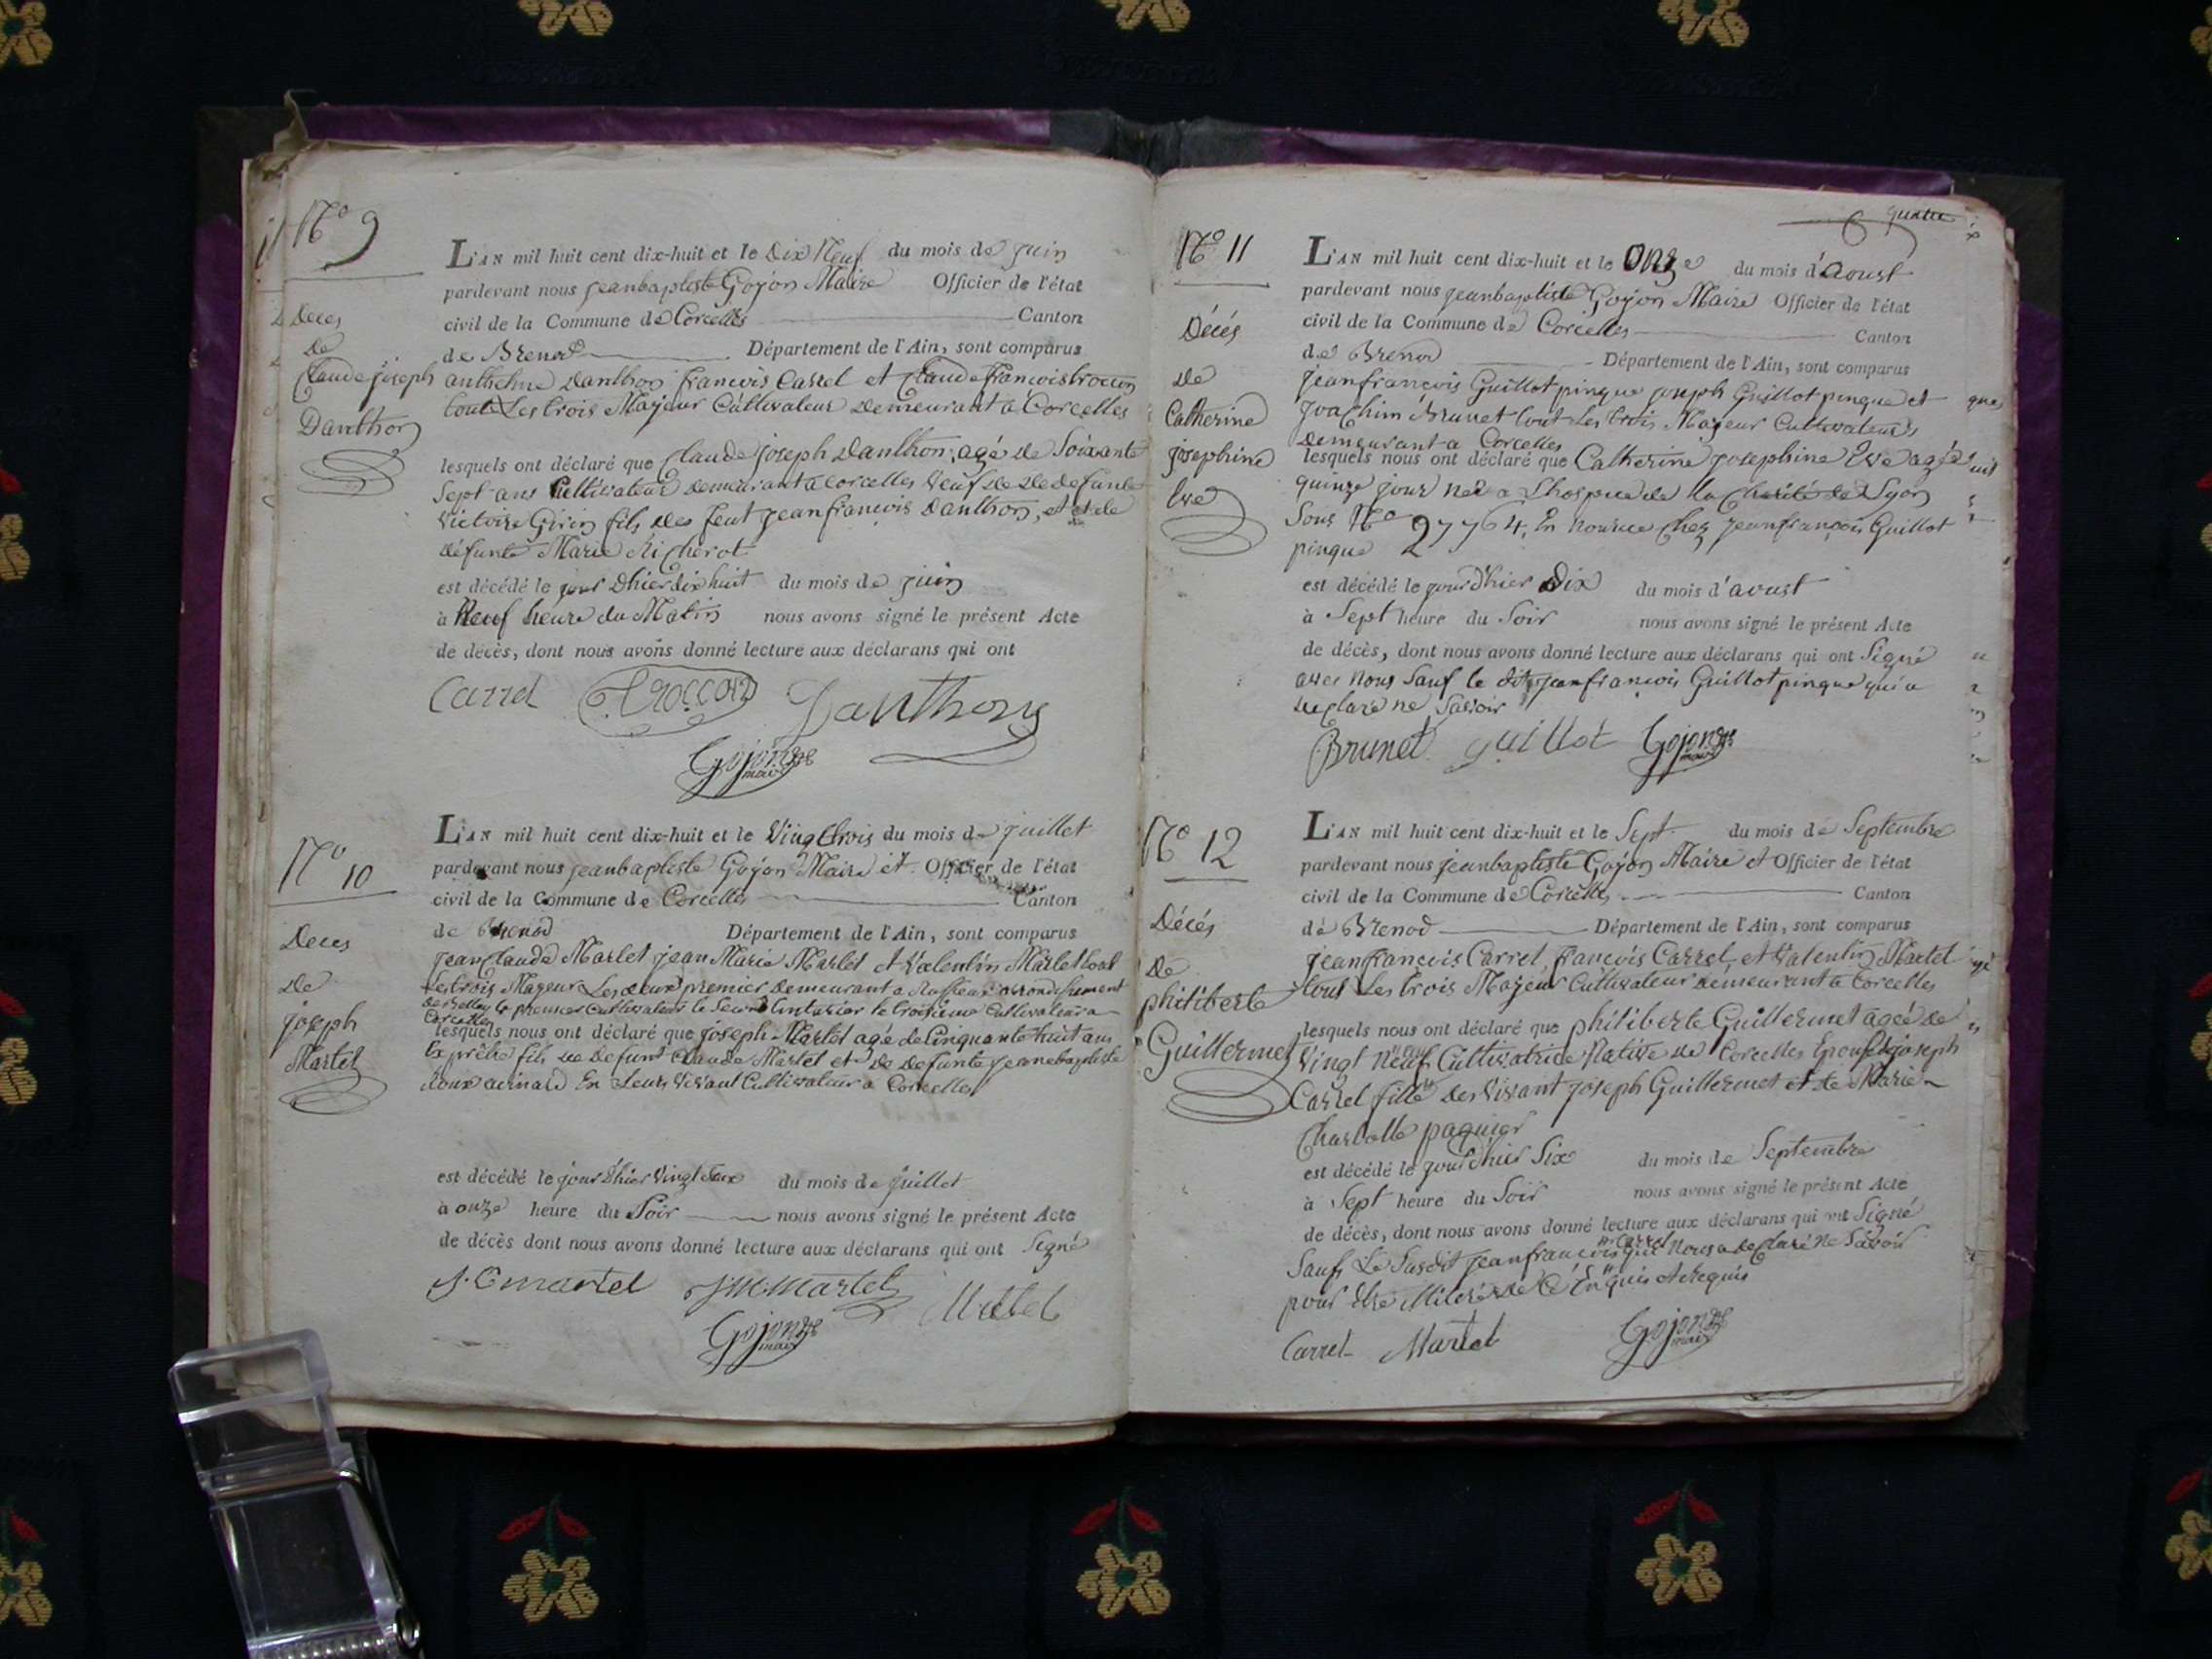 N.o 9
Deces
De
Claude joseph
Danthon
L'AN mil huit cent dix-huit et le Dix Neuf du mois de juin
pardevant nous jeanbaptiste Gojon Maire Officier de l'état
civil de la Commune de Corcelles Canton
de Brenod Département de l'Ain, sont comparus
anthelme Danthon francois Carrel et Claude francois troccon
tout Les trois Majeur Cultivateur Demeurant a Corcelles
lesquels ont déclaré que Claude joseph Danthon, agé de Soixante
Sept ans Cultivateur demeurant a corcelles Veuf de defunte
Victoire Girin fils des feut jeanfrancois Danthon, et de
défunte Marie Richerot
est décédé le jour Dhier dix huit du mois de juin
à Neuf heure du Matin nous avons signé le présent Acte
de décès, dont nous avons donné lecture aux déclarans qui ont
Carrel troccon Danthon
Gojon
maire
N.o 10
Deces
De
joseph
Martel
L'AN mil huit cent dix-huit et le Vingt trois du mois de juillet
pardevant nous jeanbapteste Gojon Maire et Officier de l'état
civil de la Commune de Corcelles Canton
de Brenod Département de l'Ain, sont comparus
jean Claude Martet jean Marie Martet et Valentin Martet tout
Les trois Majeur Les deux premier Demeurant a arrondissement
de Belley le premier Cultivateur le Second le troisieme Cultivateur a
Corcelles
lesquels nous ont déclaré que joseph Martet agé de Cinquante huit ans
Ex prêtre fils de Defunt Claude Martet et de Defunte jeanebaptiste
En Leurs Vivant Cultivateur a Corcelles
est décédé le jour Dhier Vingt Deux du mois de juillet
à onze heure du Soir nous avons signé le présent Acte
de décès dont nous avons donné lecture aux déclarans qui ont Signé
J. C martel J M. Martel Martel
Gojon
maire
quatre
N.o 11
Décés
De
Catherine
josephine
L'AN mil huit cent dix-huit et le Onze du mois d'aoust
pardevant nous jeanbaptiste Gojon Maire Officier de l'état
civil de la Commune de Corcelles Canton
de Brenod Département de l'Ain, sont comparus
jeanfrancois Guillot pinque joseph Guillot pinque et
joachim Brunet tout Les trois Majeur Cultivateurs
demeurant a Corcelles
lesquels nous ont déclaré que Catherine josephine agée
quinze jour née a Lhospice de la Charité de Lyon
Sous N.o 27764, En nourice Chez jeanfrançois Guillot
pinque
est décédé le jour Dhier Dix du mois d'avust
à Sept heure du Soir nous avons signé le présent Acte
de décès, dont nous avons donné lecture aux déclarans qui ont Signé
avec nous Sauf le dit jeanfrancois Guillot pinque qui a
declaré ne Savoir
Brunet guillot Gojon
maire
N.o 12
Décés
De
philiberte
Guillermet
L'AN mil huit cent dix-huit et le Sept du mois de Septembre
pardevant nous jeanbaptiste Gojon Maire et Officier de l'état
civil de la Commune de Corcelles Canton
de Brenod Département de l'Ain, sont comparus
jeanfrancois Carrel, francois Carrel, et Valentin Martel
tout Les trois Majeur Cultivateur demeurant a Corcelles
lesquels nous ont déclaré que philiberte Guillermet ageé de
Vingt neuf Cultivatrice Native de Corcelles Epouse de joseph
Carrel fille des Vivant joseph Guillermet et de Marie
Charlotte paquier
est décédé le jour Dhier Six du mois de Septembre
à Sept heure du Soir nous avons signé le présent Acte
de décès, dont nous avons donné lecture aux déclarans qui ont Signé
Sauf Le Susdit jeanfrancois Carrel qui Nous a declaré Ne Savoir
pour Etre de Ce Enquis et requis
Carrel Martel Gojon
maire